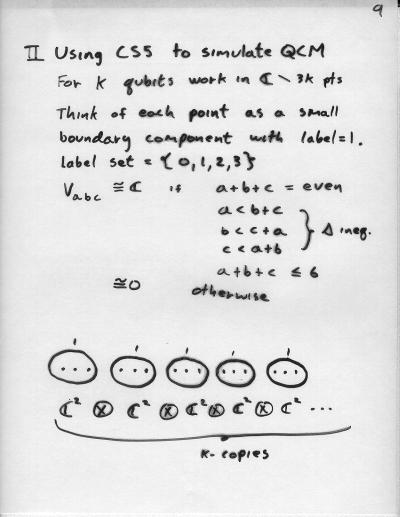 9
II Using CS5 to simulate QCM
For k qubits work in ℂ \ 3k pts
Think of each point as a small
boundary component with label=1.
label set = {0,1,2,3}
V_abc ≅ ℂ if a+b+c = even
a < b+c
b < c+a } Δ ineq.
c < a+b
a+b+c ≤ 6
≅0 otherwise
1 1 1 1 1
... ... ... ... ...
ℂ² ⊗ ℂ² ⊗ ℂ² ⊗ ℂ² ⊗ ℂ² ...
k-copies